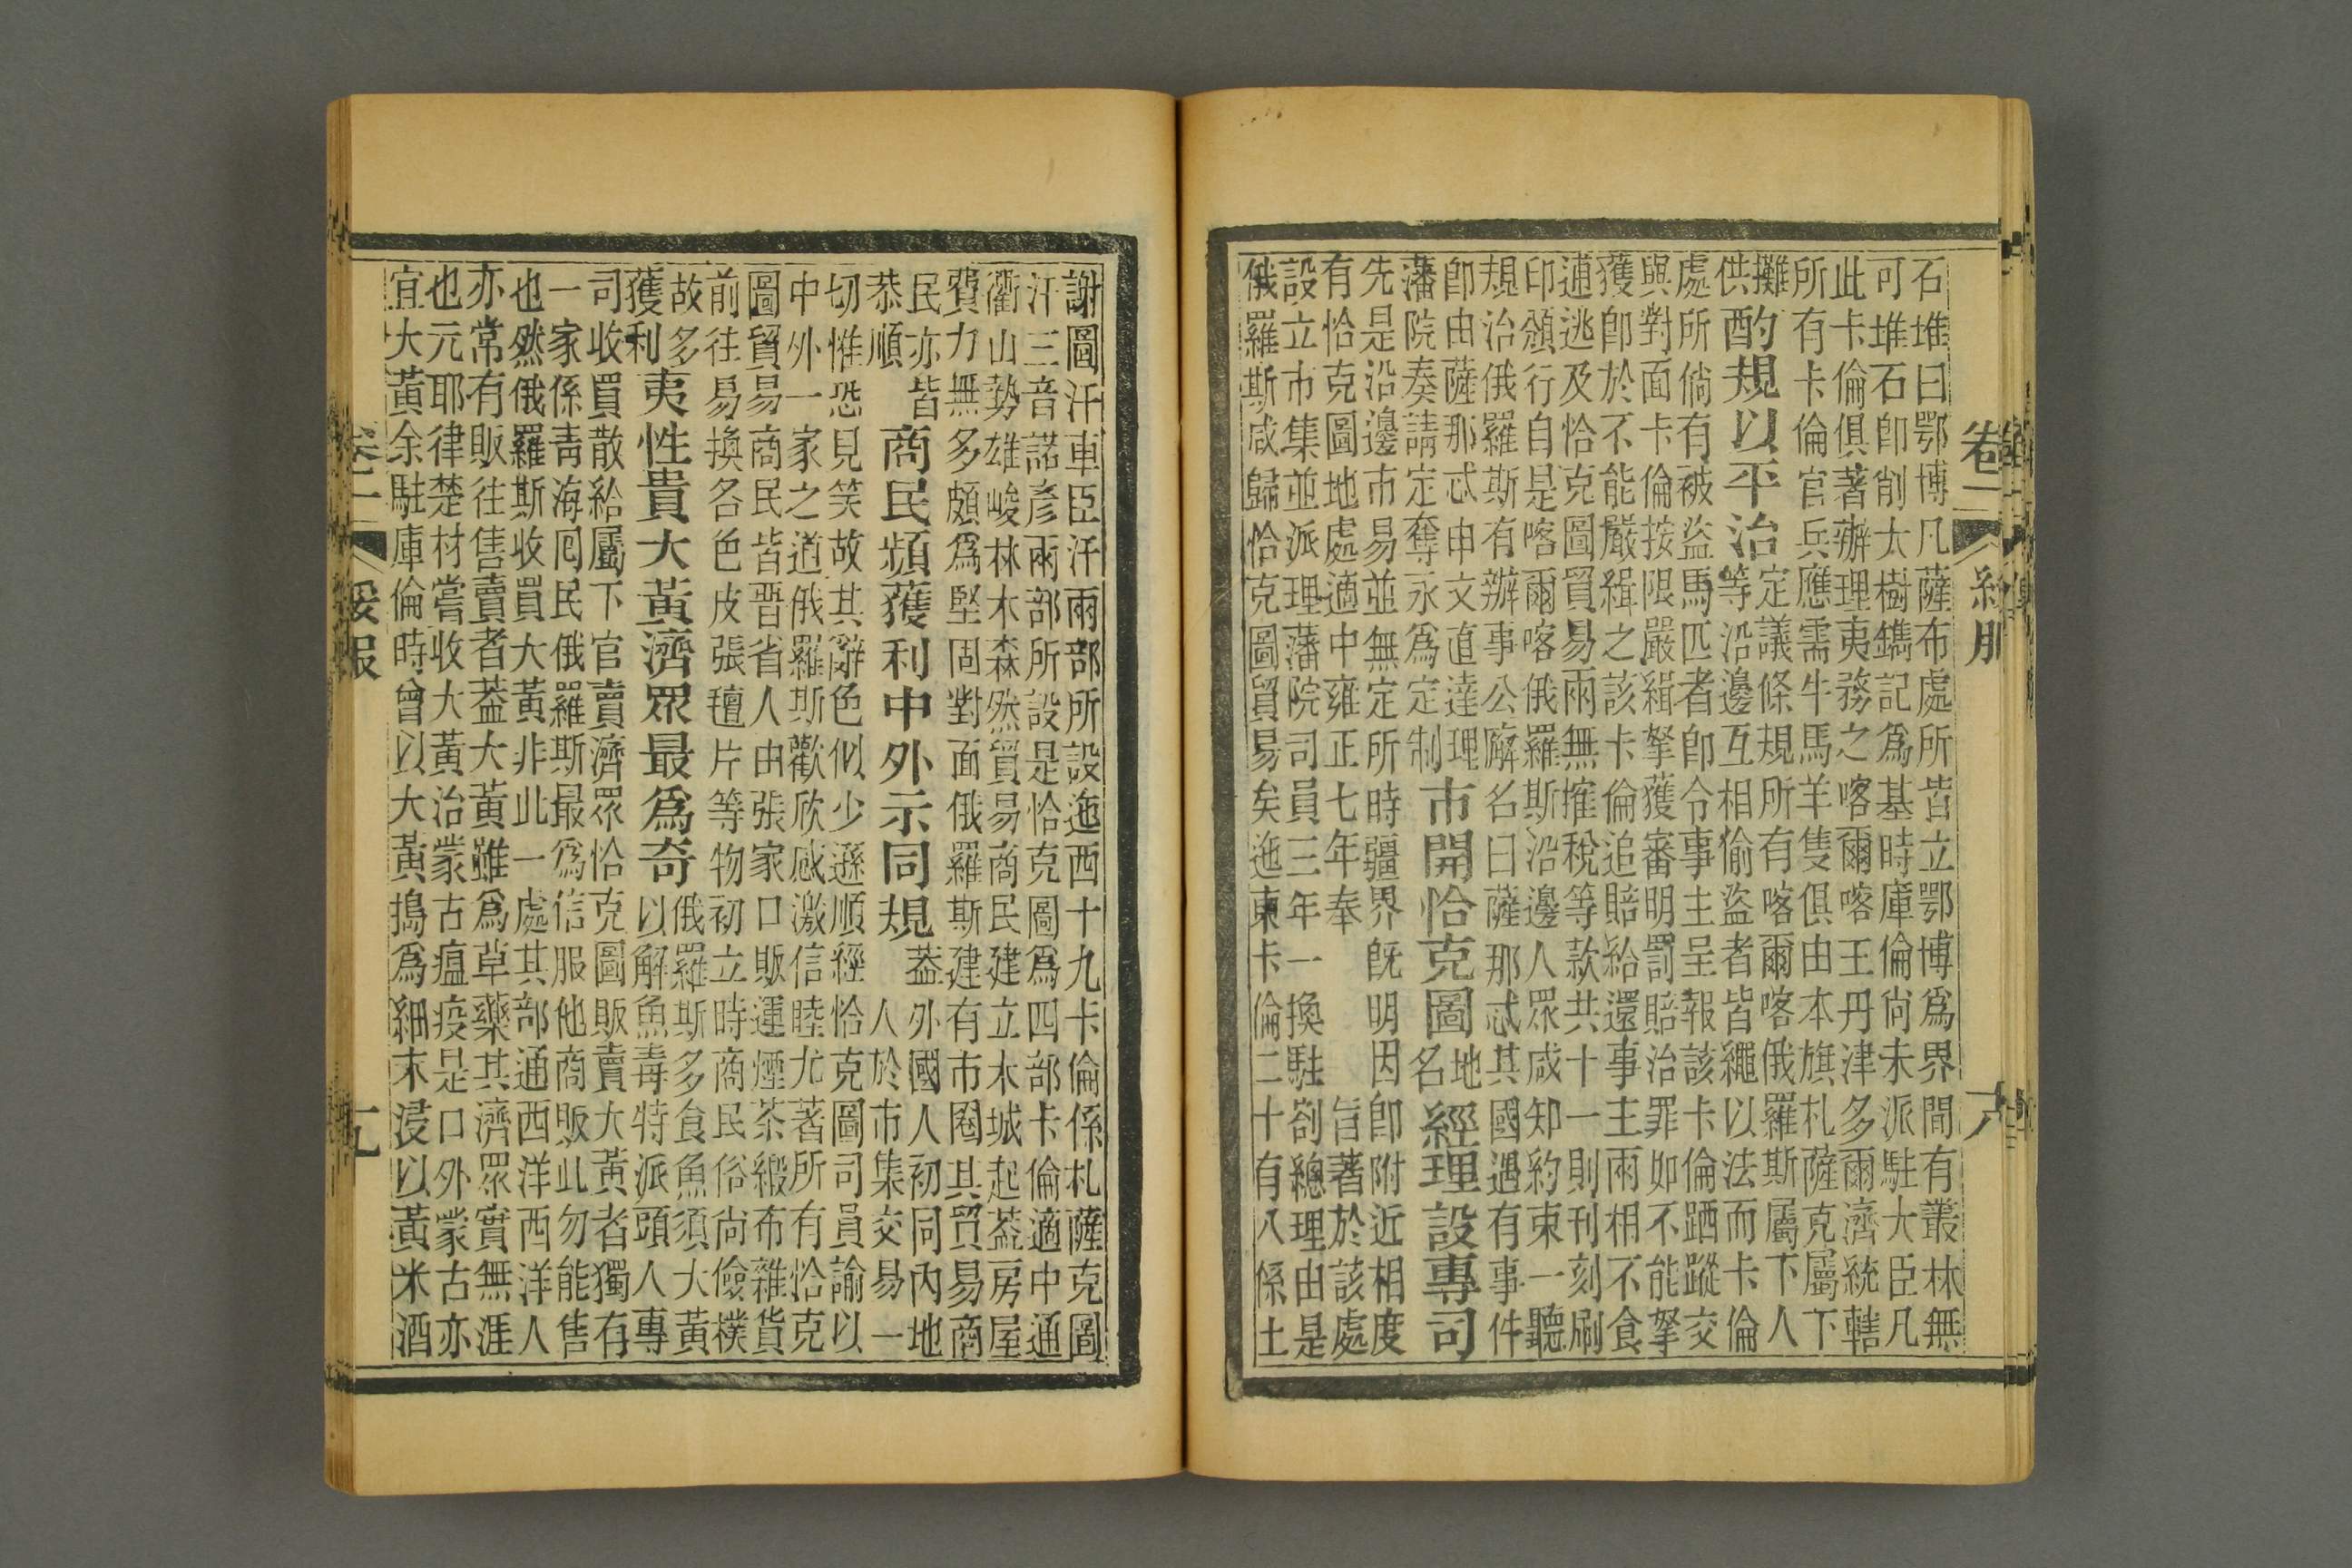 卷二
石堆曰鄂博凡薩布處所皆立鄂博爲界間有叢林無
可堆石卽削大樹鐫記爲基時庫倫尙未派駐大臣凡
此卡倫俱著辦理夷務之喀爾喀王丹津多爾濟統轄
所有卡倫官兵應需牛馬羊隻俱由本旗札薩克屬下
攤
供
酌規以平治
定議條規所有喀爾喀俄羅斯屬下人
等沿邊互相偷盜者皆繩以法而卡倫
處所倘有被盜馬匹者卽令事主呈報該卡倫跴蹤交
與對面卡倫按限嚴緝拏獲審明罰賠治罪如不能拏
獲卽於不能嚴緝之該卡倫追賠給還事主兩相不食
逋逃及恰克圖貿易兩無搉稅等款共十一則刊刻刷
印頒行自是喀爾喀俄羅斯沿邊人眾咸知約束一聽
規治俄羅斯有辦事公廨名曰薩那忒其國遇有事件
卽由薩那忒申文直達理
藩院奏請定奪永爲定制
市開恰克圖
地
名
經理設專司
先是沿邊市易並無定所時疆界旣明因卽附近相度
有恰克圖地處適中雍正七年奉 旨著於該處
設立市集並派理藩院司員三年一換駐劄總理由是
俄羅斯咸歸恰克圖貿易矣迤東卡倫二十有八係土
謝圖汗車臣汗兩部所設迤西十九卡倫係札薩克圖
汗三音諾彥兩部所設是恰克圖爲四部卡倫適中通
衢山勢雄峻林木森然貿易商民建立木城起葢房屋
費力無多頗爲堅固對面俄羅斯建有市圈其貿易商
民亦皆
恭順
商民頻獲利中外示同規
葢外國人初同內地
人於市集交易一
切惟恐見笑故其辭色似少遜順經恰克圖司員諭以
中外一家之道俄羅斯歡欣感激信睦尤著所有恰克
圖貿易商民皆晉省人由張家口販運煙茶緞布雜貨
前往易換各色皮張氊片等物初立時商民俗尙儉樸
故多
獲利
夷性貴大黃濟眾最爲奇
俄羅斯多食魚須大黃
以解魚毒特派頭人專
司收買散給屬下官賣濟眾恰克圖販賣大黃者獨有
一家係靑海回民俄羅斯最爲信服他商販此勿能售
也然俄羅斯收買大黃非此一處其部通西洋西洋人
亦常有販往售賣者葢大黃雖爲草藥其濟眾實無涯
也元耶律楚材嘗收大黃治蒙古瘟疫是口外蒙古亦
宜大黃余駐庫倫時曾以大黃搗爲細末浸以黃米酒
卷二
綏服